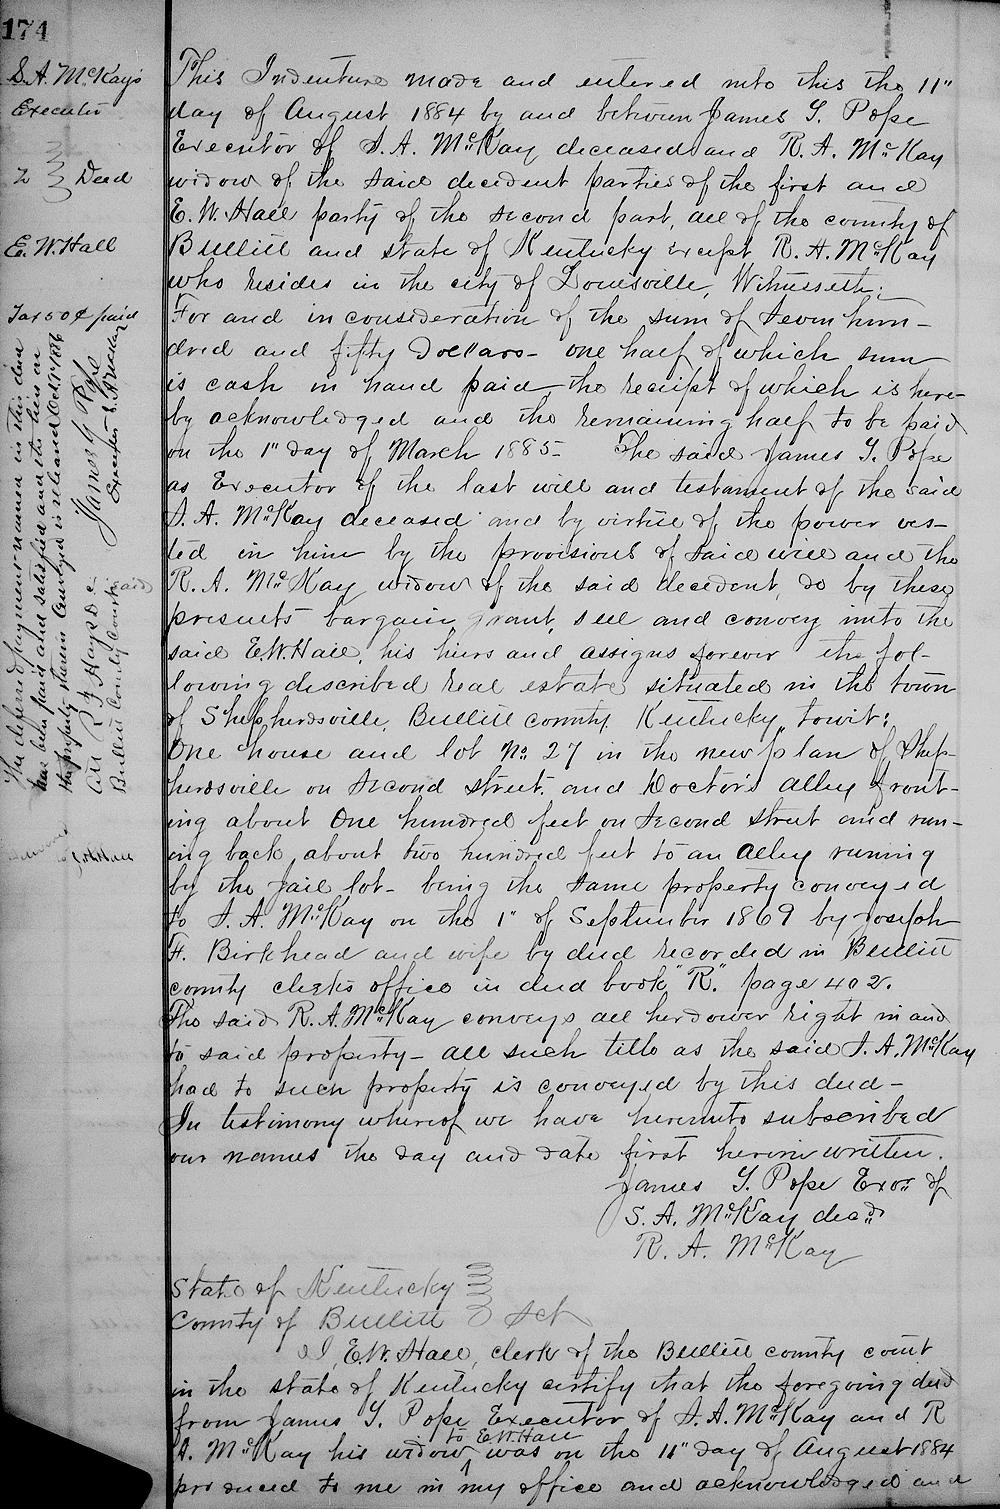 174
S. A. McKay's
Executor
To } Deed
E. W. Hall
Tax 50¢ paid
The deferred payment named in this deed
has been paid and satisfied and the lien on
the property therein conveyed is released Oct 1886
James G Pope
Executor S. A. McKay
Att R F Hays D C
Bullitt County Court
This Indenture made and entered into this the 11"
day of August 1884 by and between James G. Pope
Executor of S. A. McKay deceased and R. A. McKay
widow of the said decedent parties of the first and
E. W. Hall party of the second part, all of the county of
Bullitt and state of Kentucky except R. A. McKay
who resides in the city of Louisville, Witnesseth;
For and in consideration of the sum of seven hun-
dred and fifty Dollars - one half of which sum
is cash in hand paid, the receipt of which is here-
by acknowledged and the remaining half to be paid
on the 1" day of March 1885- The said James G. Pope
as Executor of the last will and testament of the said
S. A. McKay deceased and by virtue of the power ves-
ted in him by the provisions of said will and the
R. A. McKay widow of the said decedent, do by these
presents bargain, grant, sell and convey unto the
said E. W. Hall, his heirs and assigns forever the fol-
lowing described real estate situated in the town
of Shepherdsville, Bullitt county Kentucky, towit:
One house and lot No. 27 in the new plan of Shep-
herdsville on Second street, and Doctor's Alley front-
ing about One hundred feet on Second street and run-
ing back about two hundred feet to an Alley running
by the Jail lot - being the same property conveyed
to S. A. McKay on the 1" of September 1869 by Joseph
F. Birkhead and wife by deed recorded in Bullitt
county clerks office in deed book "R." page 402.
The said R. A. McKay conveys all her dower right in and
to said property - all such title as the said S. A. McKay
had to such property is conveyed by this deed -
In testimony whereof we have hereunto subscribed
our names the day and date first herein written.
James G. Pope Exor of
S. A. McKay decd
R. A. McKay
State of Kentucky }
County of Bullitt } Sct
I, E. W. Hall, clerk of the Bullitt county court
in the state of Kentucky certify that the foregoing deed
from James G. Pope Executor of S. A. McKay and R
to E. W. Hall
A. McKay his widow was on the 11" day of August 1884
produced to me in my office and acknowledged and